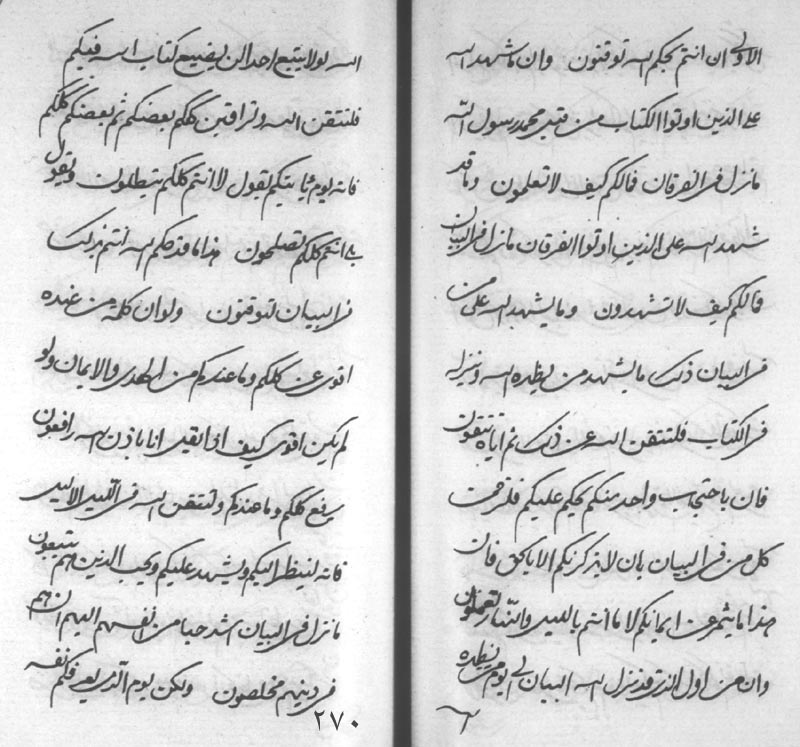 الاولى ان انتم بحكم الله توقنون وان ما شهد الله
على الذين اوتوا الكتاب من قبل محمد رسول الله
ما نزل في الفرقان فما لكم كيف لا تعلمون وما قد
شهد الله على الذين اوتوا الفرقان ما نزل في البيان
فما لكم كيف لا تشهدون وما يشهد الله على من
في البيان ذلك ما يشهد من يظهره الله وينزله
في الكتاب فلتتقن الله عن ذلك ثم اياه تتقون
فان باحتجاب واحد منكم يحكم عليكم فلترحمن
كل من في البيان بان لا يذكرنكم الا بالحق فان
هذا ما يثمر عن ايمانكم لا ما انتم بالليل والنهار تعملون
وان من اول الذي قد نزل الله البيان الى يوم من يظهره
الله لو لا يتبع احد الن يضيع كتاب الله فيكم
فلتتقن الله ولتراقبن كلكم بعضكم ثم بعضكم كلكم
فانه يوم يأتينكم يقول لا انتم كلكم متبطلون ويقول
بلى انتم كلكم تصلحون هذا ما قد حكم الله انتم بذلك
في البيان لتوقنون ولو ان كلمة من عنده
اقوى عن كلكم وما عندكم من الهدى والايمان ولو
لم يكن اقوى كيف اذا يقل انا باذن الله رافعون
يرفع كلكم وما عندكم ولتتقن الله في الليل الاليل
فانه لينظر اليكم وليشهد عليكم ويحب الذين هم يتبعون
ما نزل في البيان اشد حبا من انفسهم اليهم ان هم
في دينهم مخلصون ولكن يوم الذي يعرفكم نفسه
٢٧٠